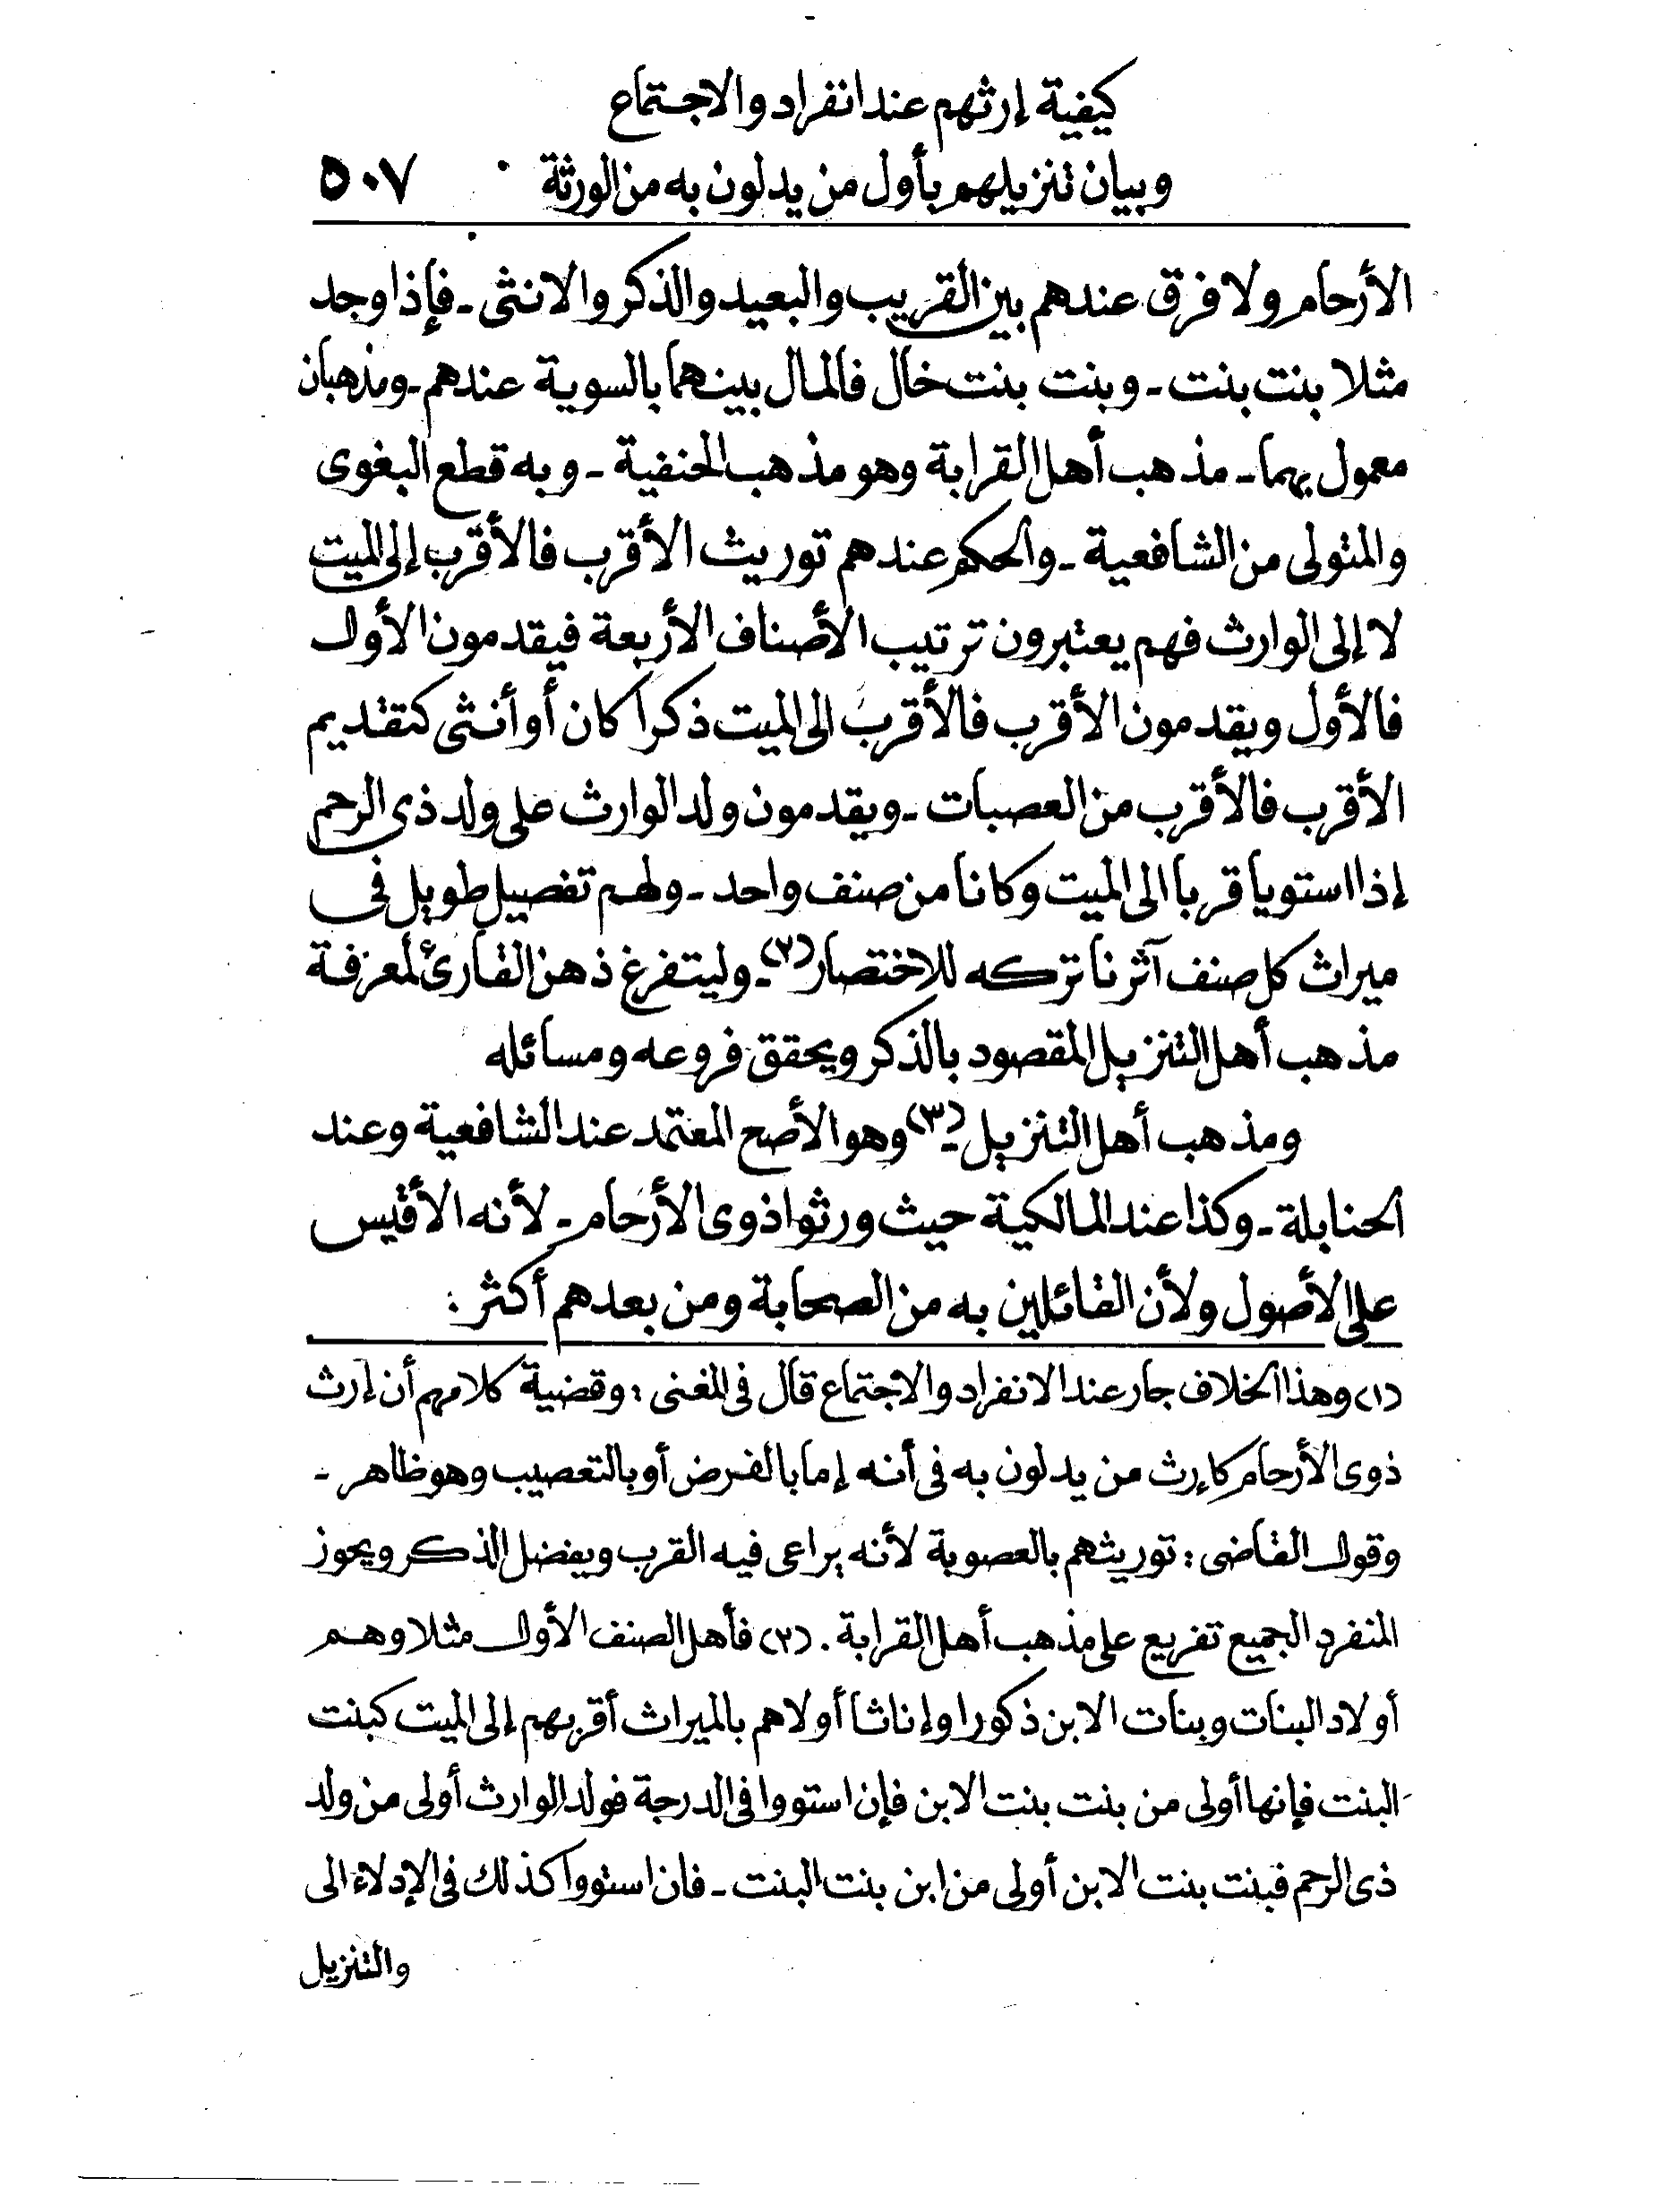 كيفية إرثهم عند انفراد والاجتماع
وبيان تنزيلهم بأول من يدلون به من الورثة ٥٠٧
الأرحام ولا فرق عندهم بين القريب والبعيد والذكر والانثى - فإذا وجد
مثلا بنت بنت - وبنت بنت خال فالمال بينهما بالسوية عندهم - ومذهبان
معمول بهما - مذهب أهل القرابة وهو مذهب الحنفية - وبه قطع البغوى
والمتولى من الشافعية - والحكم عندهم توريث الأقرب فالأقرب إلى الميت
لا إلى الوارث فهم يعتبرون ترتيب الأصناف الأربعة فيقدمون الأول
فالأول ويقدمون الأقرب فالأقرب الى الميت ذكرا كان أو أنثى كتقديم
الأقرب فالأقرب من العصبات - ويقدمون ولد الوارث على ولد ذى الرحم
إذا استويا قربا الى الميت وكانا من صنف واحد - ولهم تفصيل طويل فى
ميراث كل صنف آثرنا تركه للاختصار (٢) - وليتفرغ ذهن القارئ لمعرفة
مذهب أهل التنزيل المقصود بالذكر ويحقق فروعه ومسائله
ومذهب أهل التنزيل - (٣) وهو الأصح المعتمد عند الشافعية وعند
الحنابلة - وكذا عند المالكية حيث ورثوا ذوى الأرحام - لأنه الأقيس
على الأصول ولأن القائلين به من الصحابة ومن بعدهم أكثر :
(١) وهذا الخلاف جار عند الانفراد والاجتماع قال فى المغنى : وقضية كلامهم أن إرث
ذوى الأرحام كإرث من يدلون به فى أنه إما بالفرض أو بالتعصيب وهو ظاهر -
وقول القاضى : توريثهم بالعصوبة لأنه يراعى فيه القرب ويفضل الذكر ويحوز
المنفرد الجميع تفريع على مذهب أهل القرابة . (٢) فأهل الصنف الأول مثلا وهم
أولاد البنات وبنات الابن ذكورا وإناثا أولاهم بالميراث أقربهم إلى الميت كبنت
البنت فإنها أولى من بنت بنت الابن فإن استووا فى الدرجة فولد الوارث أولى من ولد
ذى الرحم فبنت بنت الابن أولى من ابن بنت البنت - فان استووا كذلك فى الإدلاء الى
والتنزيل